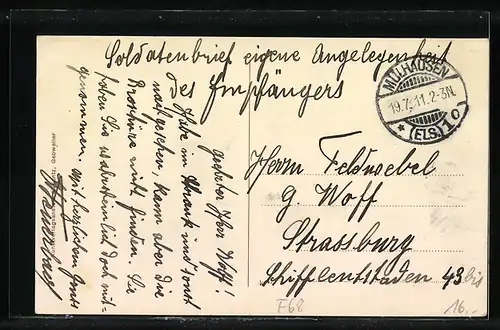 Soldatenbrief eigene Angelegenheit
des Empfängers
MÜLHAUSEN
19.7.11.2-3N.
* (ELS.) 1 o
Geehrter Herr Woff!
Habe im Schrank und sonst
nachgesehen, kann aber die
Broschüre nicht finden. Sie
haben Sie wahrscheinlich doch mit-
genommen. Mit herzlichem Gruß
Herrn Feldwebel
G. Woff
Strassburg
Schiffleutstaden 43 bis
F68
16.-